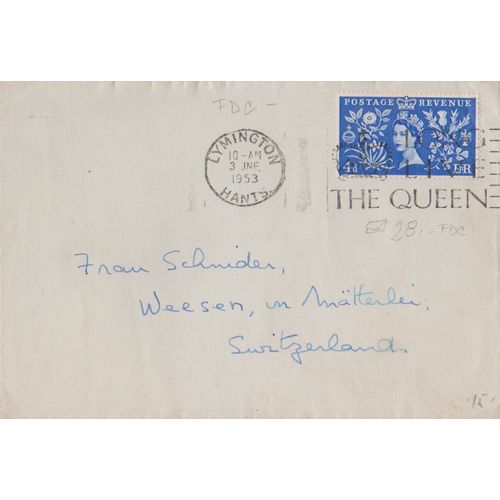 FDC -
POSTAGE REVENUE
4d E R
LYMINGTON
10-AM
3 JNE
1953
HANTS.
LONG
LIVE
THE QUEEN
28.- FDC
Frau Schnider,
Weesen, in Mätterlei,
Switzerland.
15.-